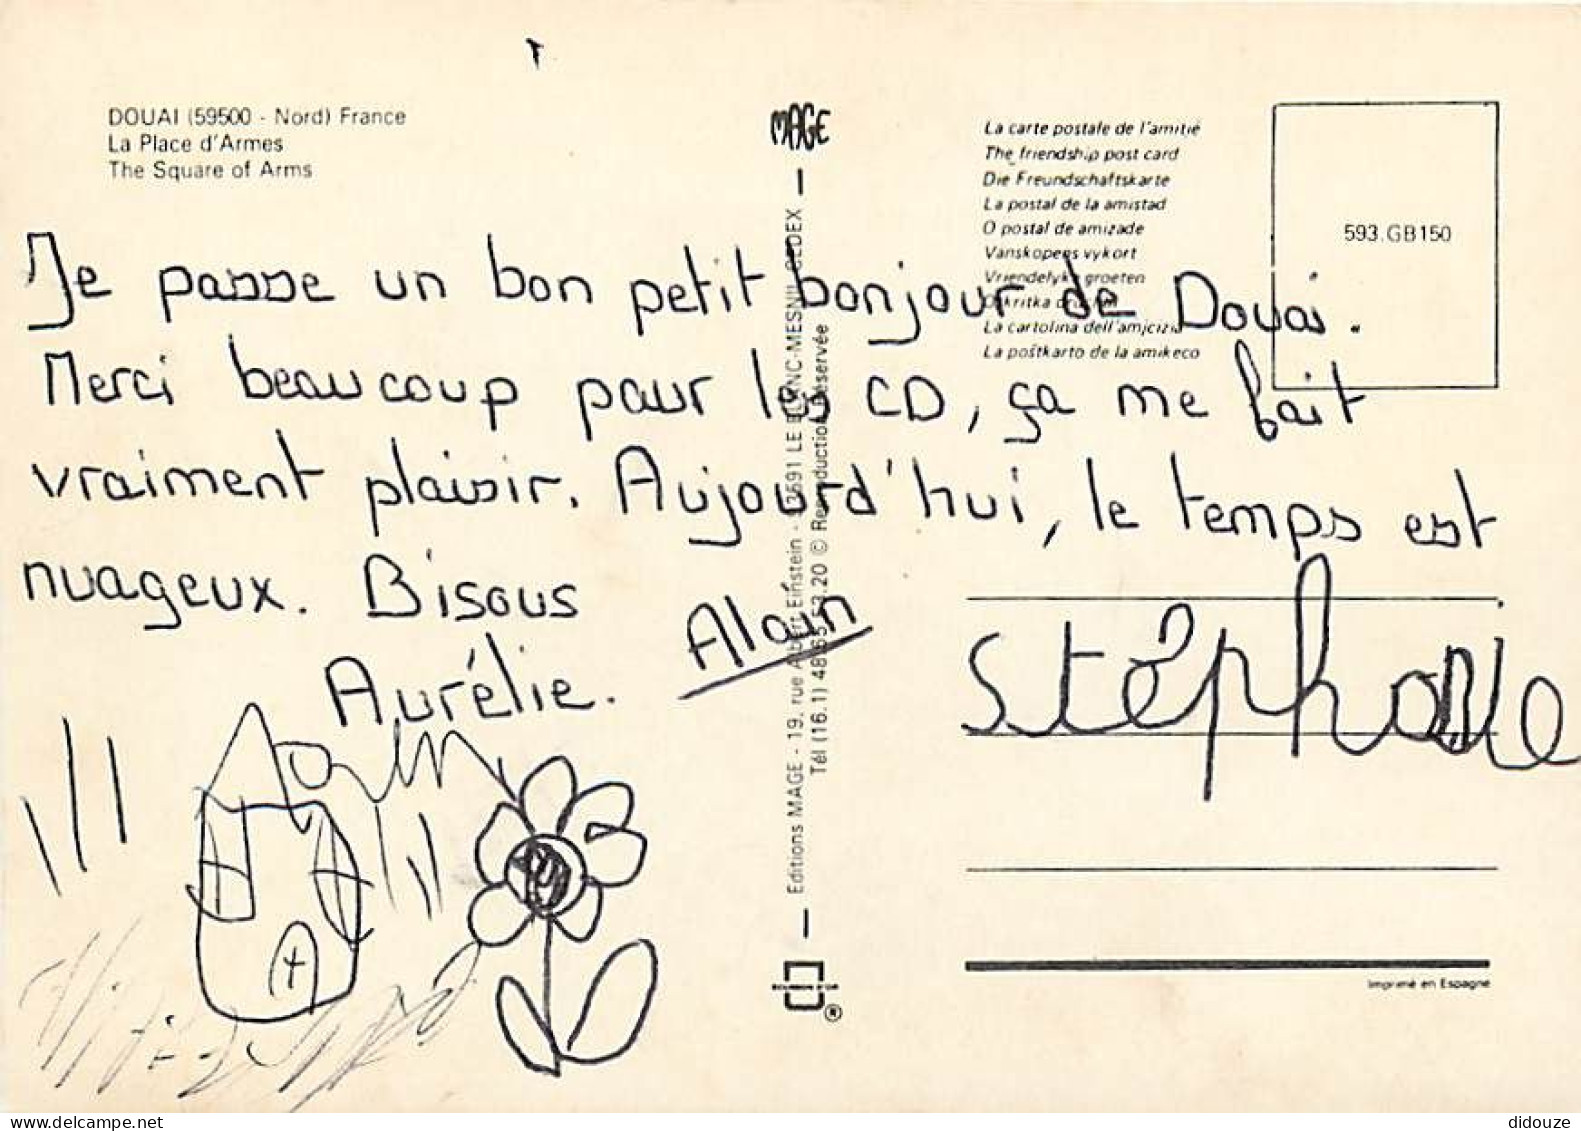 DOUAI (59500 - Nord) France
La Place d'Armes
The Square of Arms
MAGE
La carte postale de l'amitié
The friendship post card
Die Freundschaftskarte
La postal de la amistad
O postal de amizade
Vanskopens vykort
Vriendelyke groeten
La cartolina dell'amicizia
La poŝtkarto de la amikeco
593.GB150
Je passe un bon petit bonjour de Douai.
Merci beaucoup pour les CD, ça me fait
vraiment plaisir. Aujourd'hui, le temps est
nuageux. Bisous
Aurélie.
Alain
Stéphanie
Editions MAGE - 19, rue Albert Einstein - 93591 LE BLANC-MESNIL CEDEX
Tél (16.1) 48.65.53.20 © Reproduction Réservée
®
Imprimé en Espagne
didouze
delcampe.net